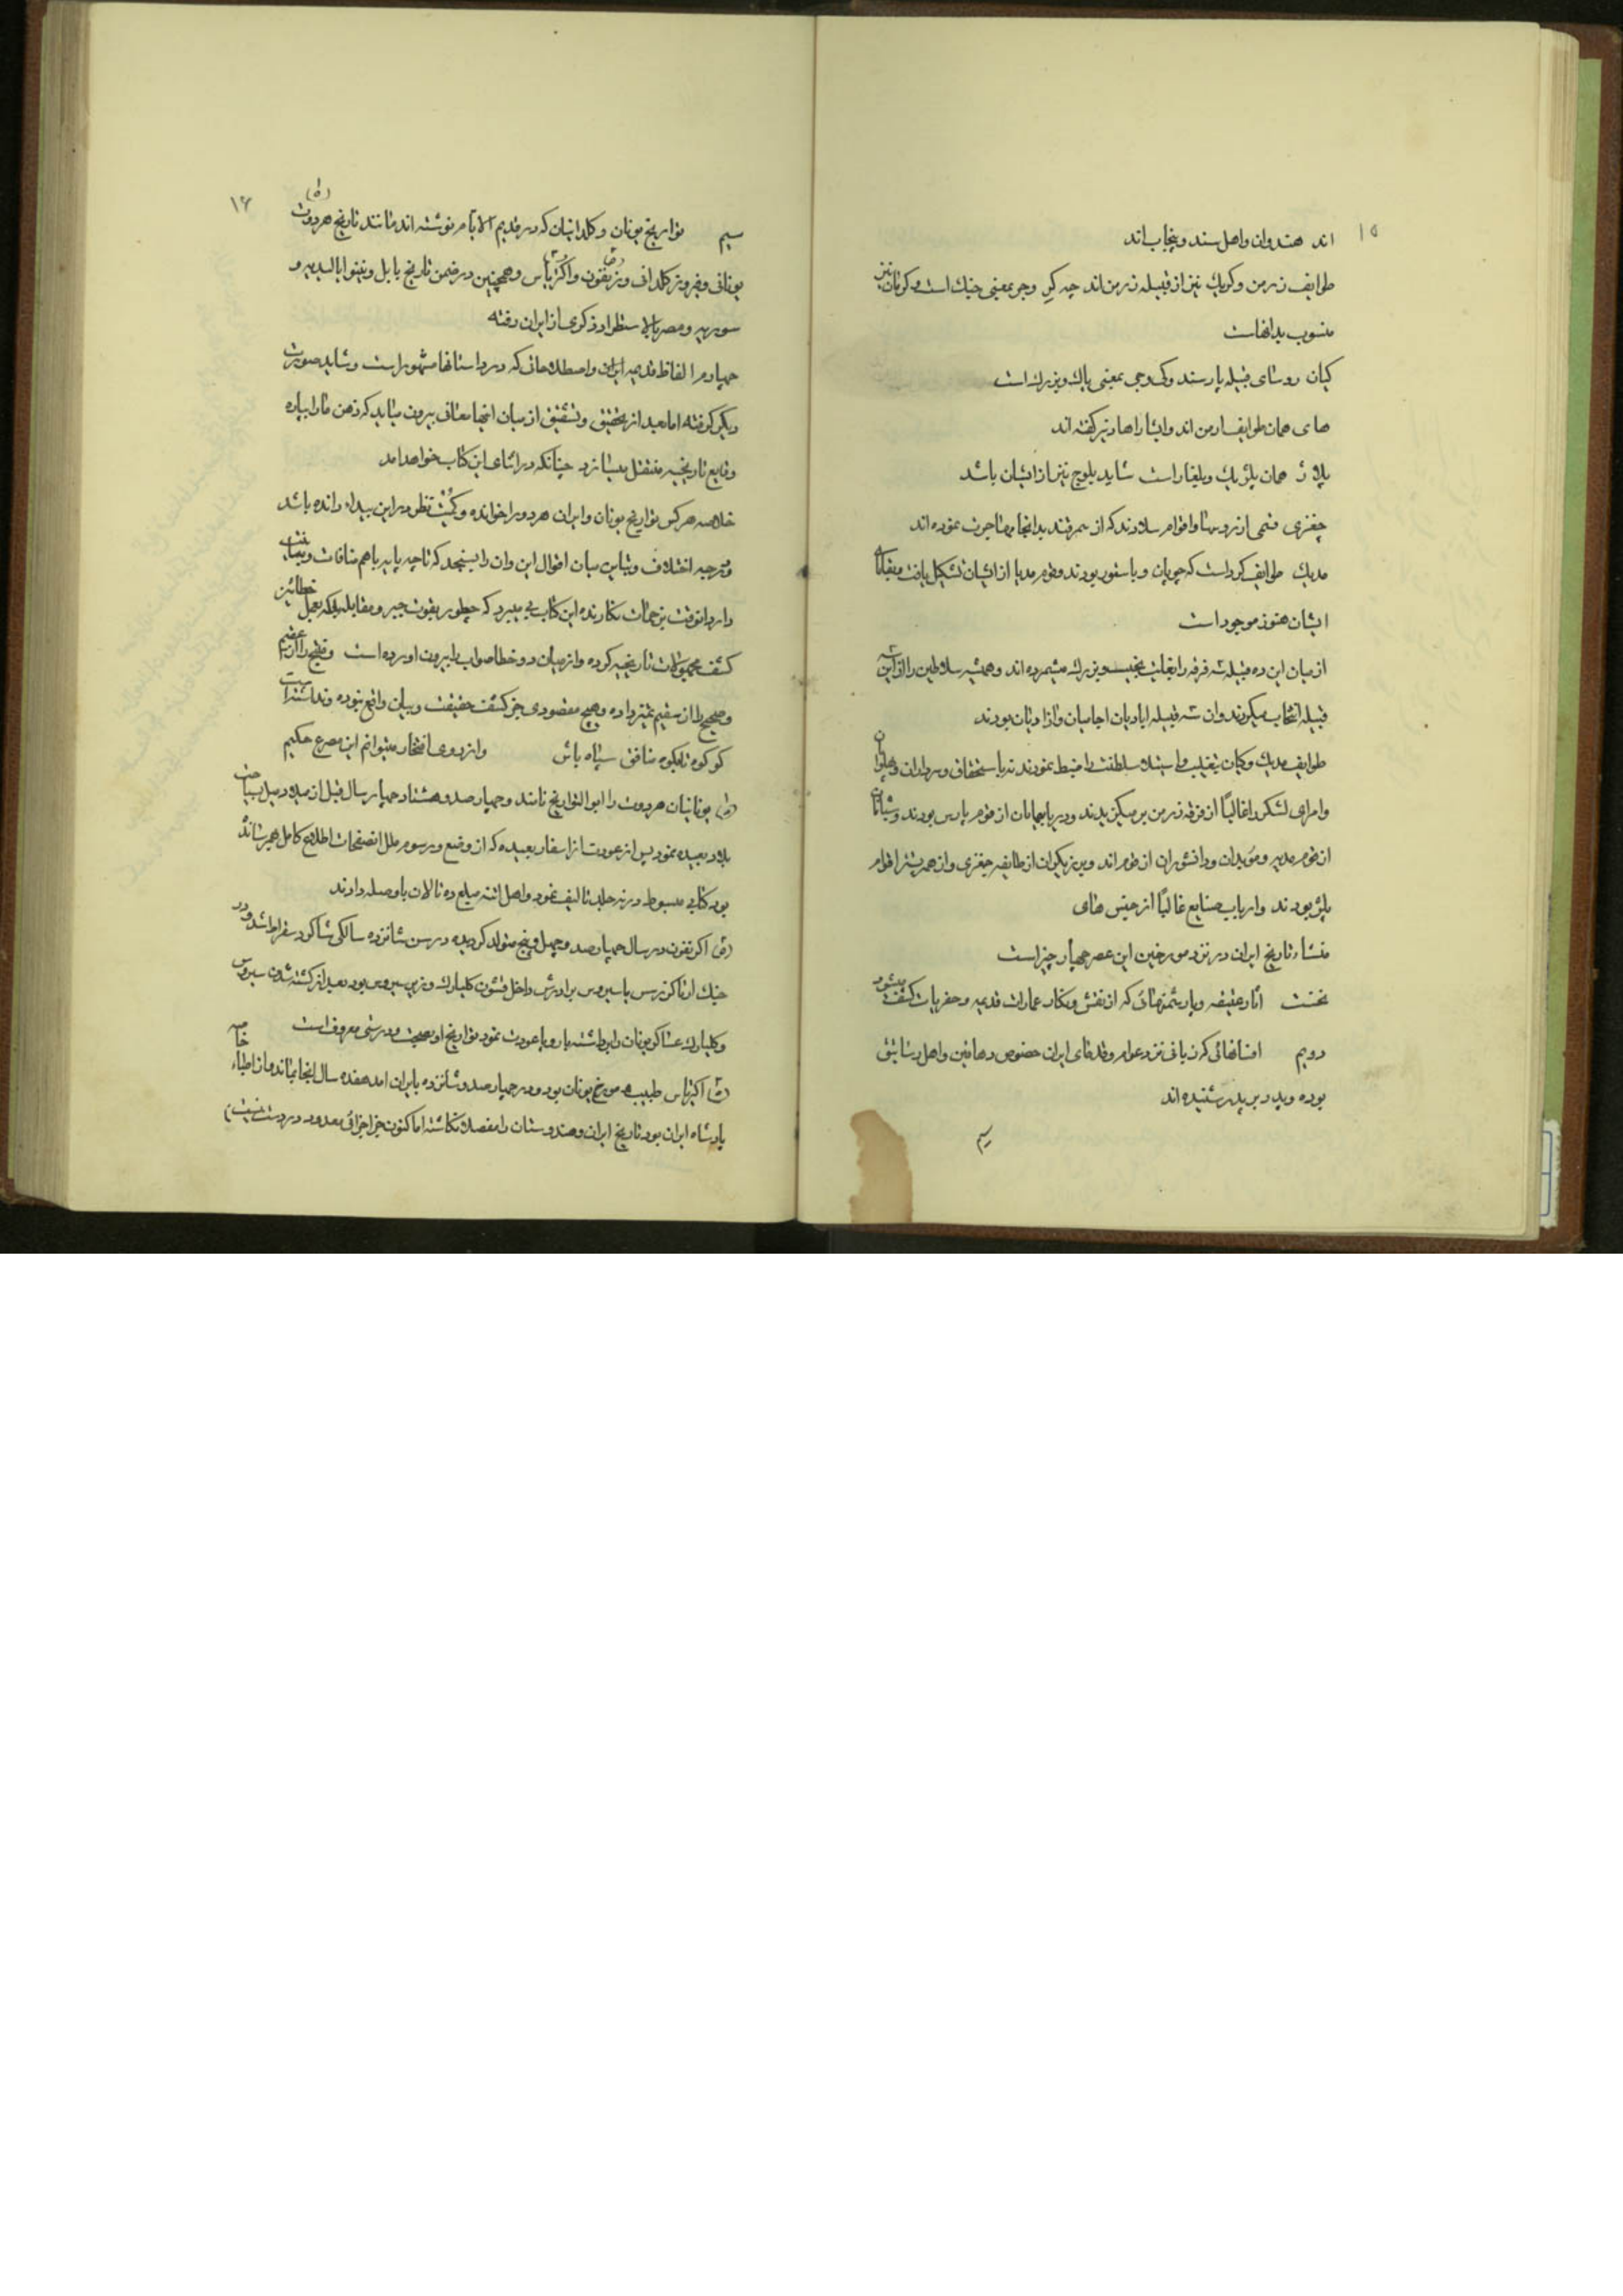 ۱۵
اند هندوان و اهل سند و پنجاب اند
طوایف ژرمن و کریك نیز از قبیله ژرمن اند چه کر و جر بمعنی جنك است و کرمان نیز
منسوب بدانهاست
کیان روسای قبیله پارسند و کی و جی بمعنی پاك و بزرك است
های همان طوایف ارمن اند و ایشان را هادیر گفته اند
پلاژ همان پلژیك و بلغار است شاید بلوچ نیز از ایشان باشد
چغزی قسمی از روسا و اقوام سلاوند که از سمرقند بدانجا مهاجرت نموده اند
مدیك طوایف کرد است که چوپان و پاستور بودند و قوم مدیا از ایشان تشکیل یافت
ایشان هنوز موجود است
از میان این ده قبیله سه فرقه را بغایت نجیب و بزرك میشمرده اند و همیشه سلاطین را از این سه
قبیله انتخاب میکردند و آن سه قبیله ابادیان اجامیان و آزادیان بودند
طوایف مدیك و کیان بتغلب و استیلا سلطنت را ضبط نمودند نه باستحقاق و سرداران و پهلوانان
و امرای لشکر را غالباً از فرقه ژرمن بر میگزیدند و دریا پیمایان از قوم پارس بودند و شبانان
از قوم مدیه و موبدان و دانشوران از قوم اند و برزیکران از طایفه چغزی و از همه بیشتر اقوام
پلژ بودند و ارباب صنایع غالباً از جنس های
منشاء تاریخ ایران در نزد مورخین این عصر چهار چیز است
نخست آثار عتیقه و پارشمنهائی که از نقش و نگار عمارات قدیمه و حفریات کشف میشود
دویم افسانهائی که زبانی نزد عوام و قدمای ایران خصوص دهاقین و اهل رساتیق
بوده و پدر بر پدر شنیده اند
سیم
۱۶
سیم تواریخ یونان و کلدانیان که در قدیم الایام نوشته اند مانند تاریخ هردوت (ط)
یونانی و فیروز کلدانی و زنفون و اکتزیاس و همچنین در ضمن تاریخ بابل و نینوا یا لیدیه و
سوریه و مصر بالاستطراد ذکری از ایران رفته
چهارم الفاظ قدیمه ایران و اصطلاحاتی که در داستانها مشهور است و شاید صورت
دیگر گرفته اما بعد از تحقیق و تشقیق از میان آنها معنائی بیرون میاید که ذهن ما را بپاره
وقایع تاریخیه منتقل میسازد چنانکه در اثنای این کتاب خواهد آمد
خلاصه هر کس تواریخ یونان و ایران هر دو را خوانده و کمیت نظر در این بیداء رانده باشد
و درجه اختلاف و تباین میان اقوال این و آن را بسنجد که تا چه پایه با هم منافات و مباینت
دارد آنوقت بزحمات نگارنده این کتاب پی میبرد که چطور بقوت جبر و مقابله بلکه بعمل خطائین
کشف مجهولات تاریخیه کرده و از میان دو خطا صواب را بیرون آورده است و منتج را از عقیم
و صحیح را از سقیم تمیز داده و هیچ مقصودی جز کشف حقیقت و بیان واقع نبوده و نداشته است
و از روی افتخار میتوانم این مصرع حکیم
کو کوه تا بکوه منافق سپاه باش
(ط) یونانیان هردوت را ابو التواریخ نامند و چهار صد و هشتاد چهار سال قبل از میلاد میل بسیاحت
بلاد بعیده نمود پس از عودت از اسفار بعیده که از وضع و رسوم ملل انصفحات اطلاع کامل بهمرسانده
بود کتابی مبسوط در نه جلد تالیف نمود و اهل اتنه مبلغ ده تالان باو صله دادند
اکزنفون در سال چهار صد و چهل و پنج متولد گردیده در سن شانزده سالگی شاگرد سقراط شد و در
جنك ارتاکزرس با سیروس برادرش داخل قشون کلیارك وزیر سیروس بود بعد از کشته شدن سیروس
و کلیارك عساکر یونان را برداشته باروپا عودت نمود تواریخ او بصحت و درستی معروف است
اکتزیاس طبیب و مورخ یونان بود و در چهار صد و شانزده بایران آمد هفده سال اینجا بماند و از اطباء خاصه
پادشاه ایران بود تاریخ ایران و هندوستان را مفصلا نگاشته اما کنون جز اجزائی معدود در دست نیست